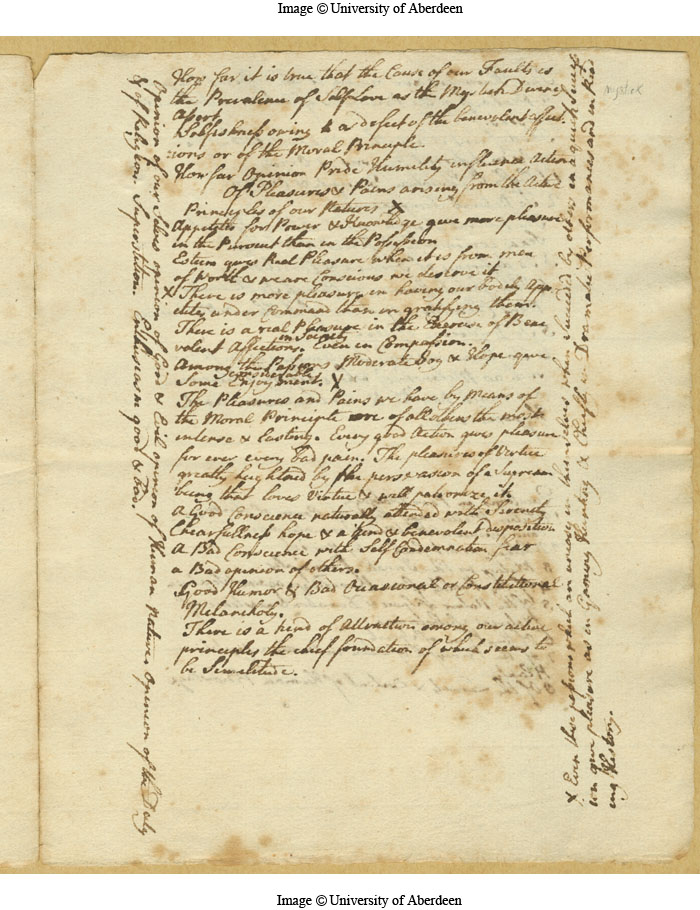 Image © University of Aberdeen
How far it is true that the Cause of our Faults is
the Prevalence of Self Love as the Mystick Divines
Assert
Selfishness owing to a defect of the benevolent affect-
ions or of the Moral Principle.
How far Opinion Pride Humility influence Action
Of Pleasures & Pains arising from the Active
Principles of our Natures X
Appetites for Power & Knowledge give more pleasure
in the Pursuit than in the Possession
Esteem gives Real Pleasure when it is from men
of Worth & we are Conscious we deserve it
X There is more pleasure in having our bodily App-
etites under Command than in gratifying them.
There is a real Pleasure in the Exercise of Bene
volent Affections. Even in Compassion.
in Society
Among the Passions Moderate Joy & Hope give
considerable
Some Enjoyment. X
The Pleasures and Pains we have by Means of
the Moral Principle are of all others the most
intense & lasting. Every good Action gives pleasure
for ever every bad pain. The pleasures of Virtue
greatly heightned by the perswasion of a Supreme
being that loves Virtue & will patronize it.
A Good Conscience naturally attended with Serenity
Chearfullness hope & a kind & benevolent disposition
A Bad Conscience with Self Condemnation fear
a Bad opinion of others.
Good Humor & Bad Occasional or Constitutional
Melancholy.
There is a kind of Attraction among our active
principles the chief foundation of which seems to
be Similitude.
Opinion of our Selves opinion of Good & Evil opinion of Human Nature Opinion of the Deity
& of Religion. Superstition. Enthusiasm good & bad.
X Even those passions which are uneasy in themselves when Succeeded by others in a quick Success
ion give pleasure as in Gaming Hunting & Chiefly in Dramatic Performances and in Read
ing History.
Image © University of Aberdeen